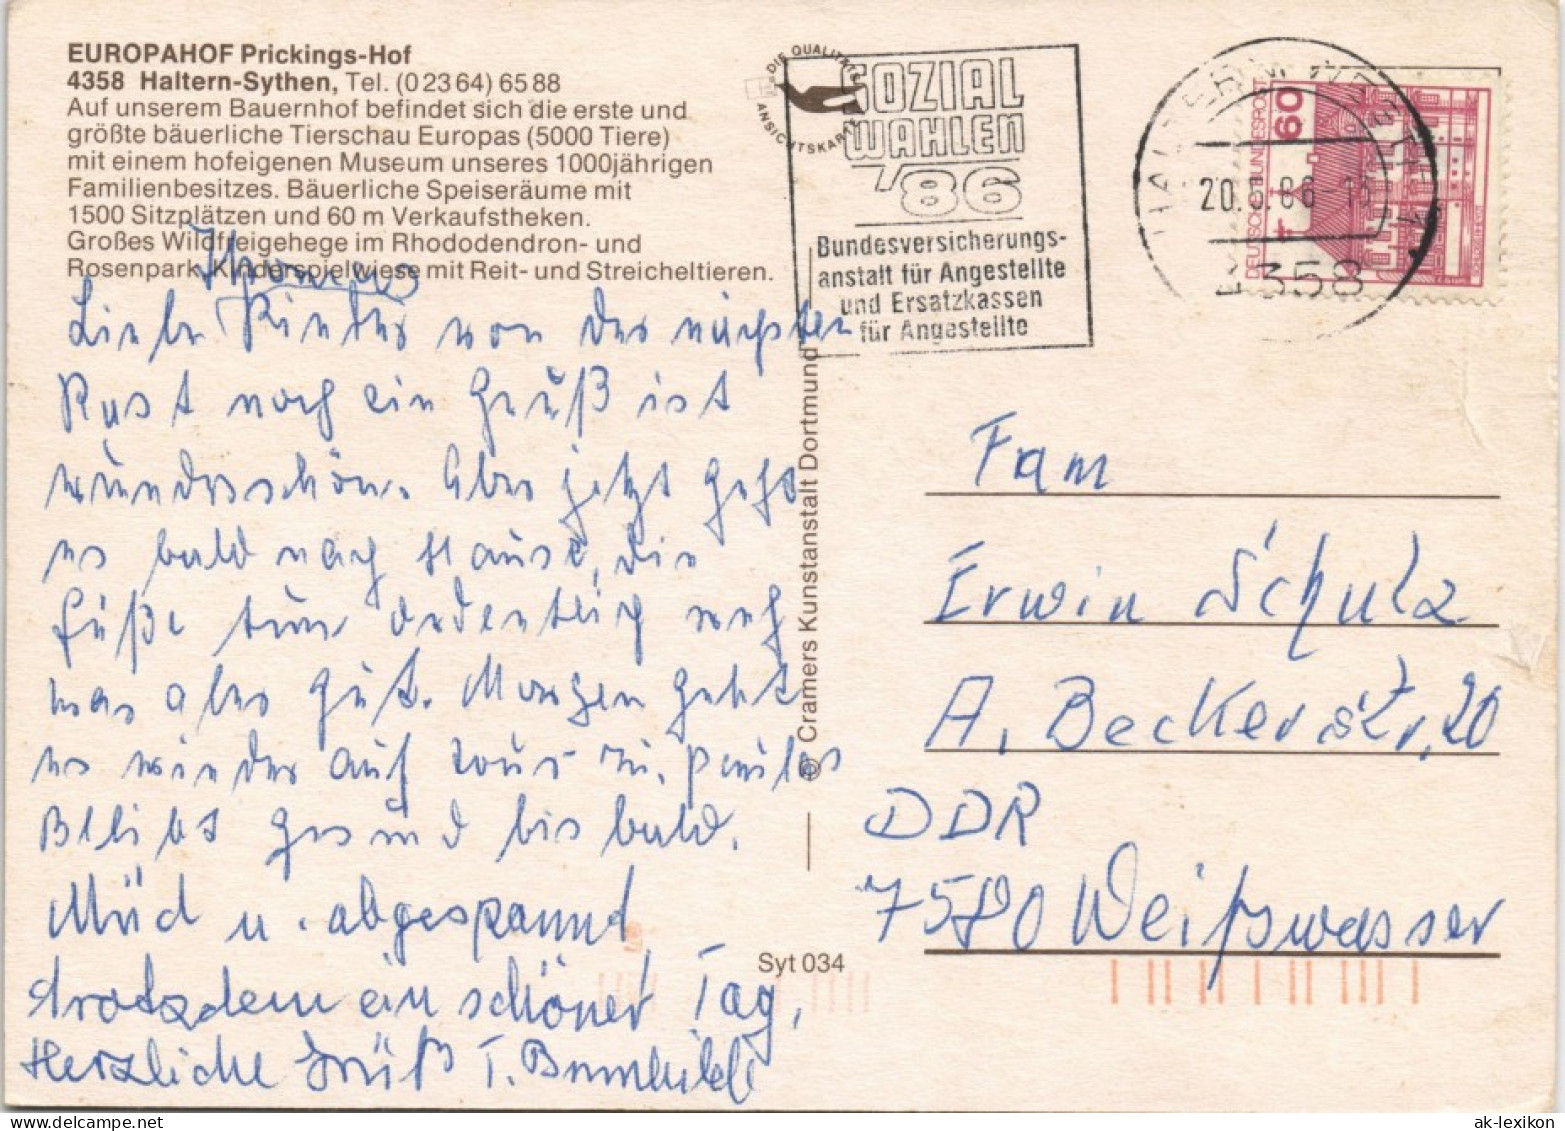 EUROPAHOF Prickings-Hof
4358 Haltern-Sythen, Tel. (0 23 64) 65 88
Auf unserem Bauernhof befindet sich die erste und
größte bäuerliche Tierschau Europas (5000 Tiere)
mit einem hofeigenen Museum unseres 1000jährigen
Familienbesitzes. Bäuerliche Speiseräume mit
1500 Sitzplätzen und 60 m Verkaufstheken.
Großes Wildfreigehege im Rhododendron- und
Rosenpark, Kinderspielwiese mit Reit- und Streicheltieren.
Thomas
Liebe Kinder von der nächsten
Rast noch ein Gruß ist
wunderschön. Aber jetzt gehts
es bald nach Hause, die
Füße tun ordentlich weh
was aber gut. Morgen geht
es wieder auf
Bleibt gesund bis bald.
Müd u. abgespannt
trotzdem ein schöner Tag,
Herzliche Grüß T. Brunhilde
DIE QUALITÄTS
ANSICHTSKARTE
SOZIAL
WAHLEN
'86
Bundesversicherungs-
anstalt für Angestellte
und Ersatzkassen
für Angestellte
20.6.86
4358
DEUTSCHE BUNDESPOST
60
© Cramers Kunstanstalt Dortmund
Syt 034
Fam
Erwin Schulz
A. Beckerstr. 20
DDR
7580 Weißwasser
ak-lexikon